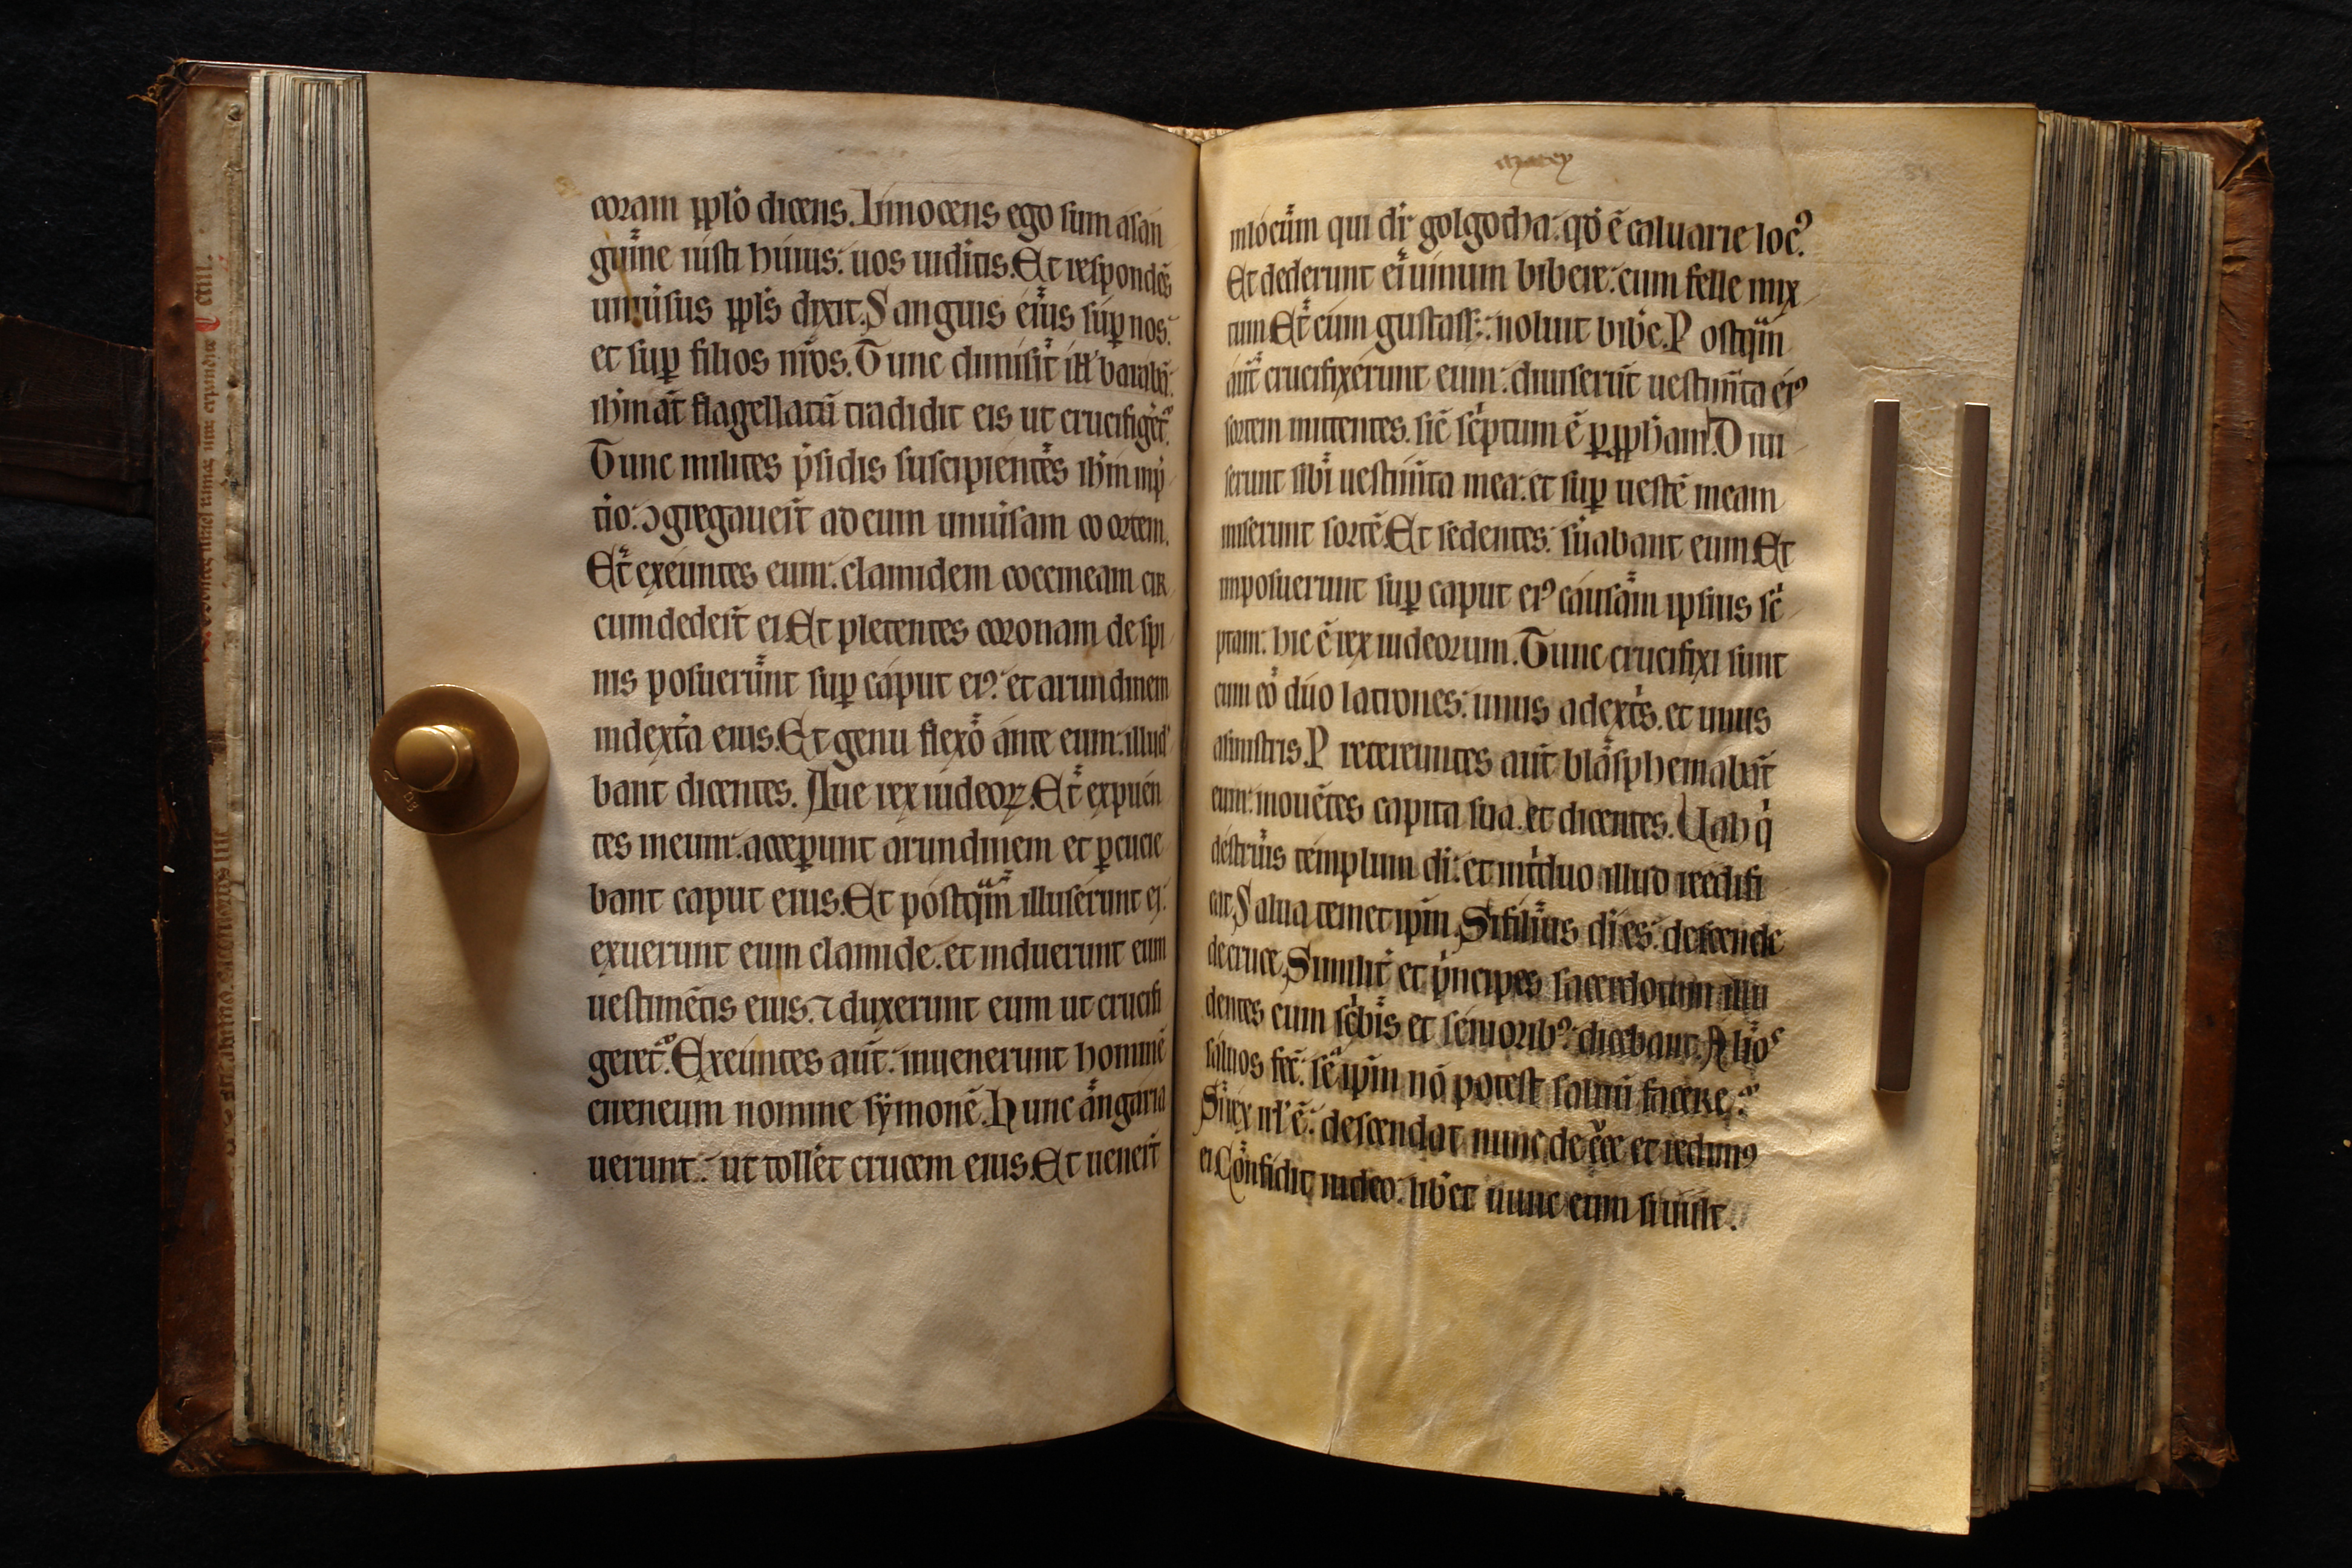 coram pplo dicens. Innocens ego sum a san
guine iusti huius: uos uiditis. Et respondēs
uniusus ppls dixit. Sanguis eius sup nos:
et sup filios nros. Tunc dimisit ill' baraba:
ihm at flagellatū tradidit eis ut crucifiget.
Tunc milites psidis suscipientes ihm in
tio: ↄgregauert ad eum uniusam coortem.
Et exeuntes eum: clamidem coccineam cir
cumdedert ei. Et plectentes coronam de spi
nis posuerunt sup caput eiꝰ: et arundinem
in dextra eius. Et genu flexo ante eum: illud
bant dicentes. Aue rex iudeoꝝ. Et expuen
tes in eum: acceperunt arundinem et pcucie
bant caput eius. Et postqm illuserunt ei:
exuerunt eum clamide. et induerunt eum
uestimētis eius. ⁊ duxerunt eum ut crucifi
geret. Exeuntes aut: inuenerunt hominē
cireneum nomine symonē. Hunc angaria
uerunt: ut tolleret crucem eius. Et uenert
marcy
in locum qui dr golgotha: qd ē caluarie locꝰ.
Et dederunt ei uinum bibere: cum felle mix
tum Et cum gustass: noluit bibe. Postqm
aut crucifixerunt eum: diuiserut uestimta eiꝰ
sortem mittentes. sic scptum ē p ppham. Diui
serunt sibi uestimta mea: et sup uestē meam
miserunt sortē. Et sedentes: suabant eum Et
imposuerunt sup caput eiꝰ causam ipsius sc
ptam: hic ē rex iudeorum. Tunc crucifixi sunt
cum eo duo latrones: unus a dextris. et unus
a sinistris. Pretereuntes aut blasphemabāt
eum: mouētes capita sua. et dicentes. Uah q
destruis templum di: et in triduo illud reedifi
cat. Salua temet ipm. Si filius di es: descende
de cruce. Similit et pncipes sacerdotum illu
dentes cum scbis et seniorib': dicebant. Alios
saluos fec: se ipm no potest saluū facere.
Si rex isrl ē: descendat nunc de cce et credimꝰ
ei. Confidit in deo: libet nunc eum si uult.